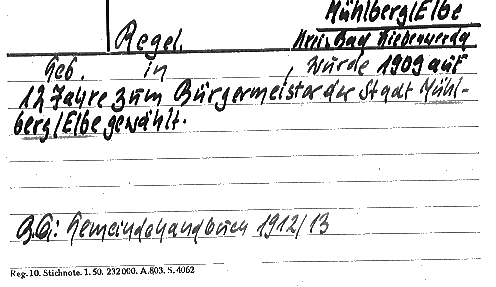 Mühlberg/Elbe
Regel. Kris. Bad Liebenwerda
Geb. in , wurde 1909 auf
12 Jahre zum Bürgermeister der Stadt Mühl-
berg/Elbe gewählt.
B.G.: Gemeindehandbuch 1912/13
Reg. 10. Stichnote. 1. 50. 232 000. A. 803. S. 4062